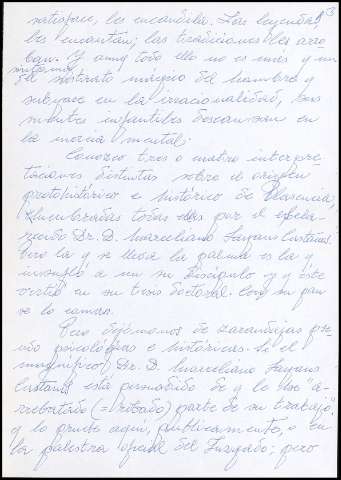 satisface, les encandila. Las leyendas 3
les encantan; las tradiciones les arro
ban. Y aunq todo ello no es más q un
síntoma
el sustrato mágico del hombre q
subyace en la irracionalidad, sus
mentes infantiles descansan en
la inercia mental.
Conozco tres o cuatro interpre
taciones distintas sobre el origen
protohistórico e histórico de Plasencia,
alumbradas todas ellas por el esclа-
recido Dr. D. Marceliano Sayans Castaños.
Pero la q se lleva la palma es la q
insufló a un su discípulo q q éste
vertió en su tesis doctoral. Con su pan
se lo coman.
Pero dejémonos de zarandajas pseu
do psicológicas e históricas. Si el
magnífico Dr. D. Marceliano Sayans
Castaños está persuadido de q le he "a-
rrebatado (= robado) parte de su trabajo",
q lo pruebe aquí, públicamente, o en
la palestra oficial del Juzgado; pero